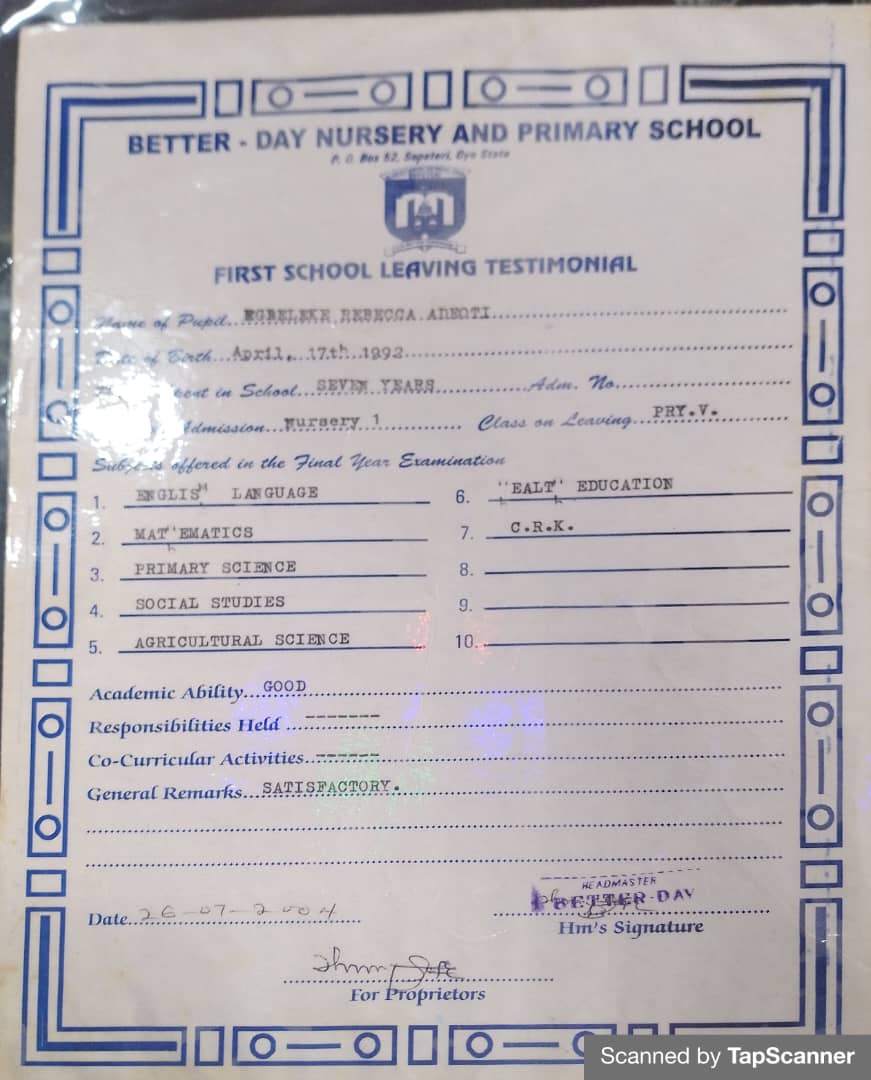 BETTER - DAY NURSERY AND PRIMARY SCHOOL
P. O. Box 52, Sepeteri, Oyo State
FIRST SCHOOL LEAVING TESTIMONIAL
Name of Pupil...EGBELEKE REBECCA ADEOTI
Date of Birth...April, 17th 1992
spent in School...SEVEN YEARS Adm. No.
Admission...Nursery 1 Class on Leaving...PRY.V.
Subjects offered in the Final Year Examination
1. ENGLISH LANGUAGE
2. MATHEMATICS
3. PRIMARY SCIENCE
4. SOCIAL STUDIES
5. AGRICULTURAL SCIENCE
6. HEALTH EDUCATION
7. C.R.K.
8.
9.
10.
Academic Ability...GOOD
Responsibilities Held ...-------
Co-Curricular Activities...------
General Remarks...SATISFACTORY.
Date...26-07-2004
HEADMASTER
BETTER-DAY
Hm's Signature
For Proprietors
Scanned by TapScanner